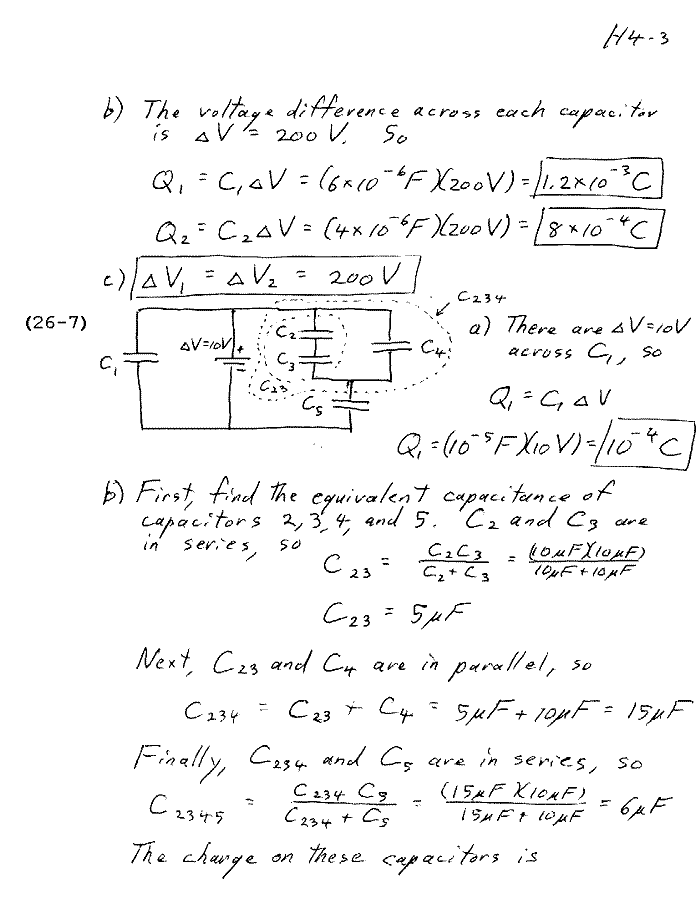 H4-3
b) The voltage difference across each capacitor
is ΔV = 200 V. So
Q₁ = C₁ΔV = (6×10⁻⁶F)(200V) = 1.2×10⁻³C
Q₂ = C₂ΔV = (4×10⁻⁶F)(200V) = 8×10⁻⁴C
c) ΔV₁ = ΔV₂ = 200 V
(26-7)
C₁
ΔV=10V
+
-
C₂
C₃
C₂₃
C₄
C₅
C₂₃₄
a) There are ΔV=10V
across C₁, so
Q₁ = C₁ΔV
Q₁ = (10⁻⁵F)(10V) = 10⁻⁴C
b) First, find the equivalent capacitance of
capacitors 2, 3, 4, and 5. C₂ and C₃ are
in series, so
C₂₃ = C₂C₃ / C₂+C₃ = (10μF)(10μF) / 10μF+10μF
C₂₃ = 5μF
Next, C₂₃ and C₄ are in parallel, so
C₂₃₄ = C₂₃ + C₄ = 5μF + 10μF = 15μF
Finally, C₂₃₄ and C₅ are in series, so
C₂₃₄₅ = C₂₃₄ C₅ / C₂₃₄ + C₅ = (15μF)(10μF) / 15μF + 10μF = 6μF
The charge on these capacitors is